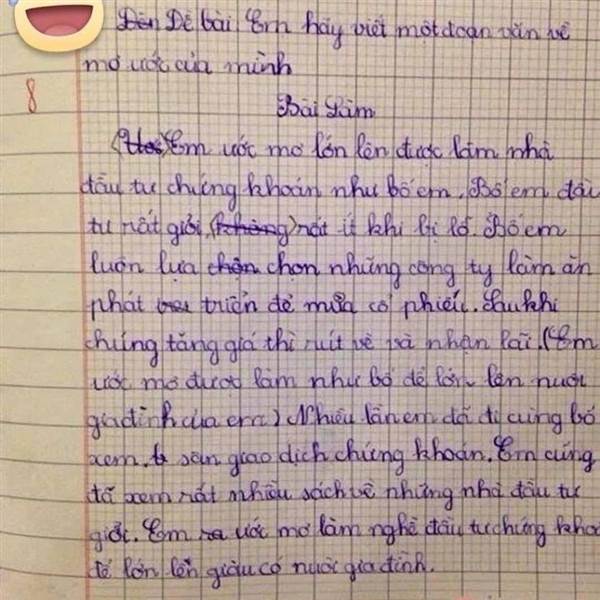 Đề bài, Em hãy viết một đoạn văn về
mơ ước của mình
8
Bài Làm
Em ước mơ lớn lên được làm nhà
đầu tư chứng khoán như bố em. Bố em đầu
tư rất giỏi, (không) rất ít khi bị lỗ. Bố em
luôn lựa chọn chọn những công ty làm ăn
phát triển để mua cổ phiếu. Sau khi
chúng tăng giá thì rút về và nhận lãi. (Em
ước mơ được làm như bố để lớn lên nuôi
gia đình của em) Nhiều lần em đã đi cùng bố
xem sàn giao dịch chứng khoán. Em cũng
đã xem rất nhiều sách về những nhà đầu tư
giỏi. Em ra ước mơ làm nghề đầu tư chứng kho
để lớn lên giàu có nuôi gia đình.